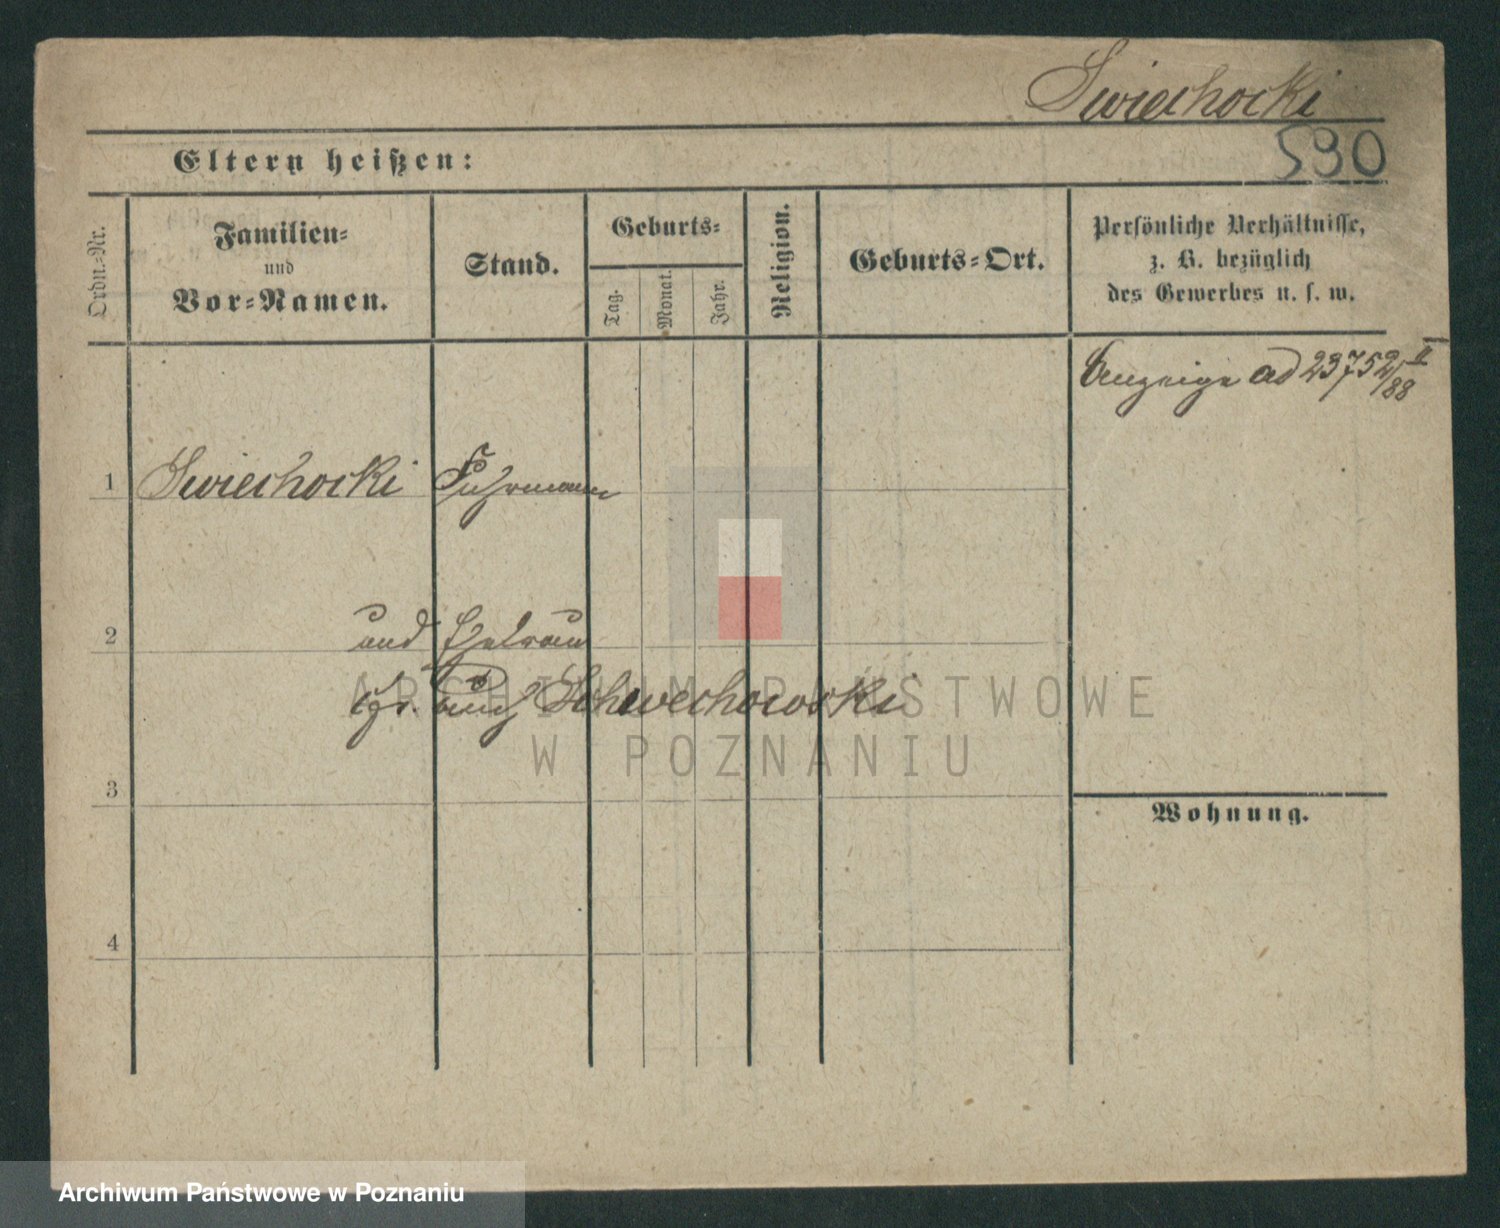 Swiechocki
590
Eltern heißen:
Ordn.-Nr.
Familien-
und
Vor-Namen.
Stand.
Geburts-
Tag.
Monat.
Jahr.
Religion.
Geburts-Ort.
Persönliche Verhältnisse,
z. B. bezüglich
des Gewerbes u. s. w.
Anzeige ad 23752/88 II
1 Swiechocki Fuhrmann
2 und Ehefrau
cfr. auch Schwechowski
3
Wohnung.
4
ARCHIWUM PAŃSTWOWE
W POZNANIU
Archiwum Państwowe w Poznaniu